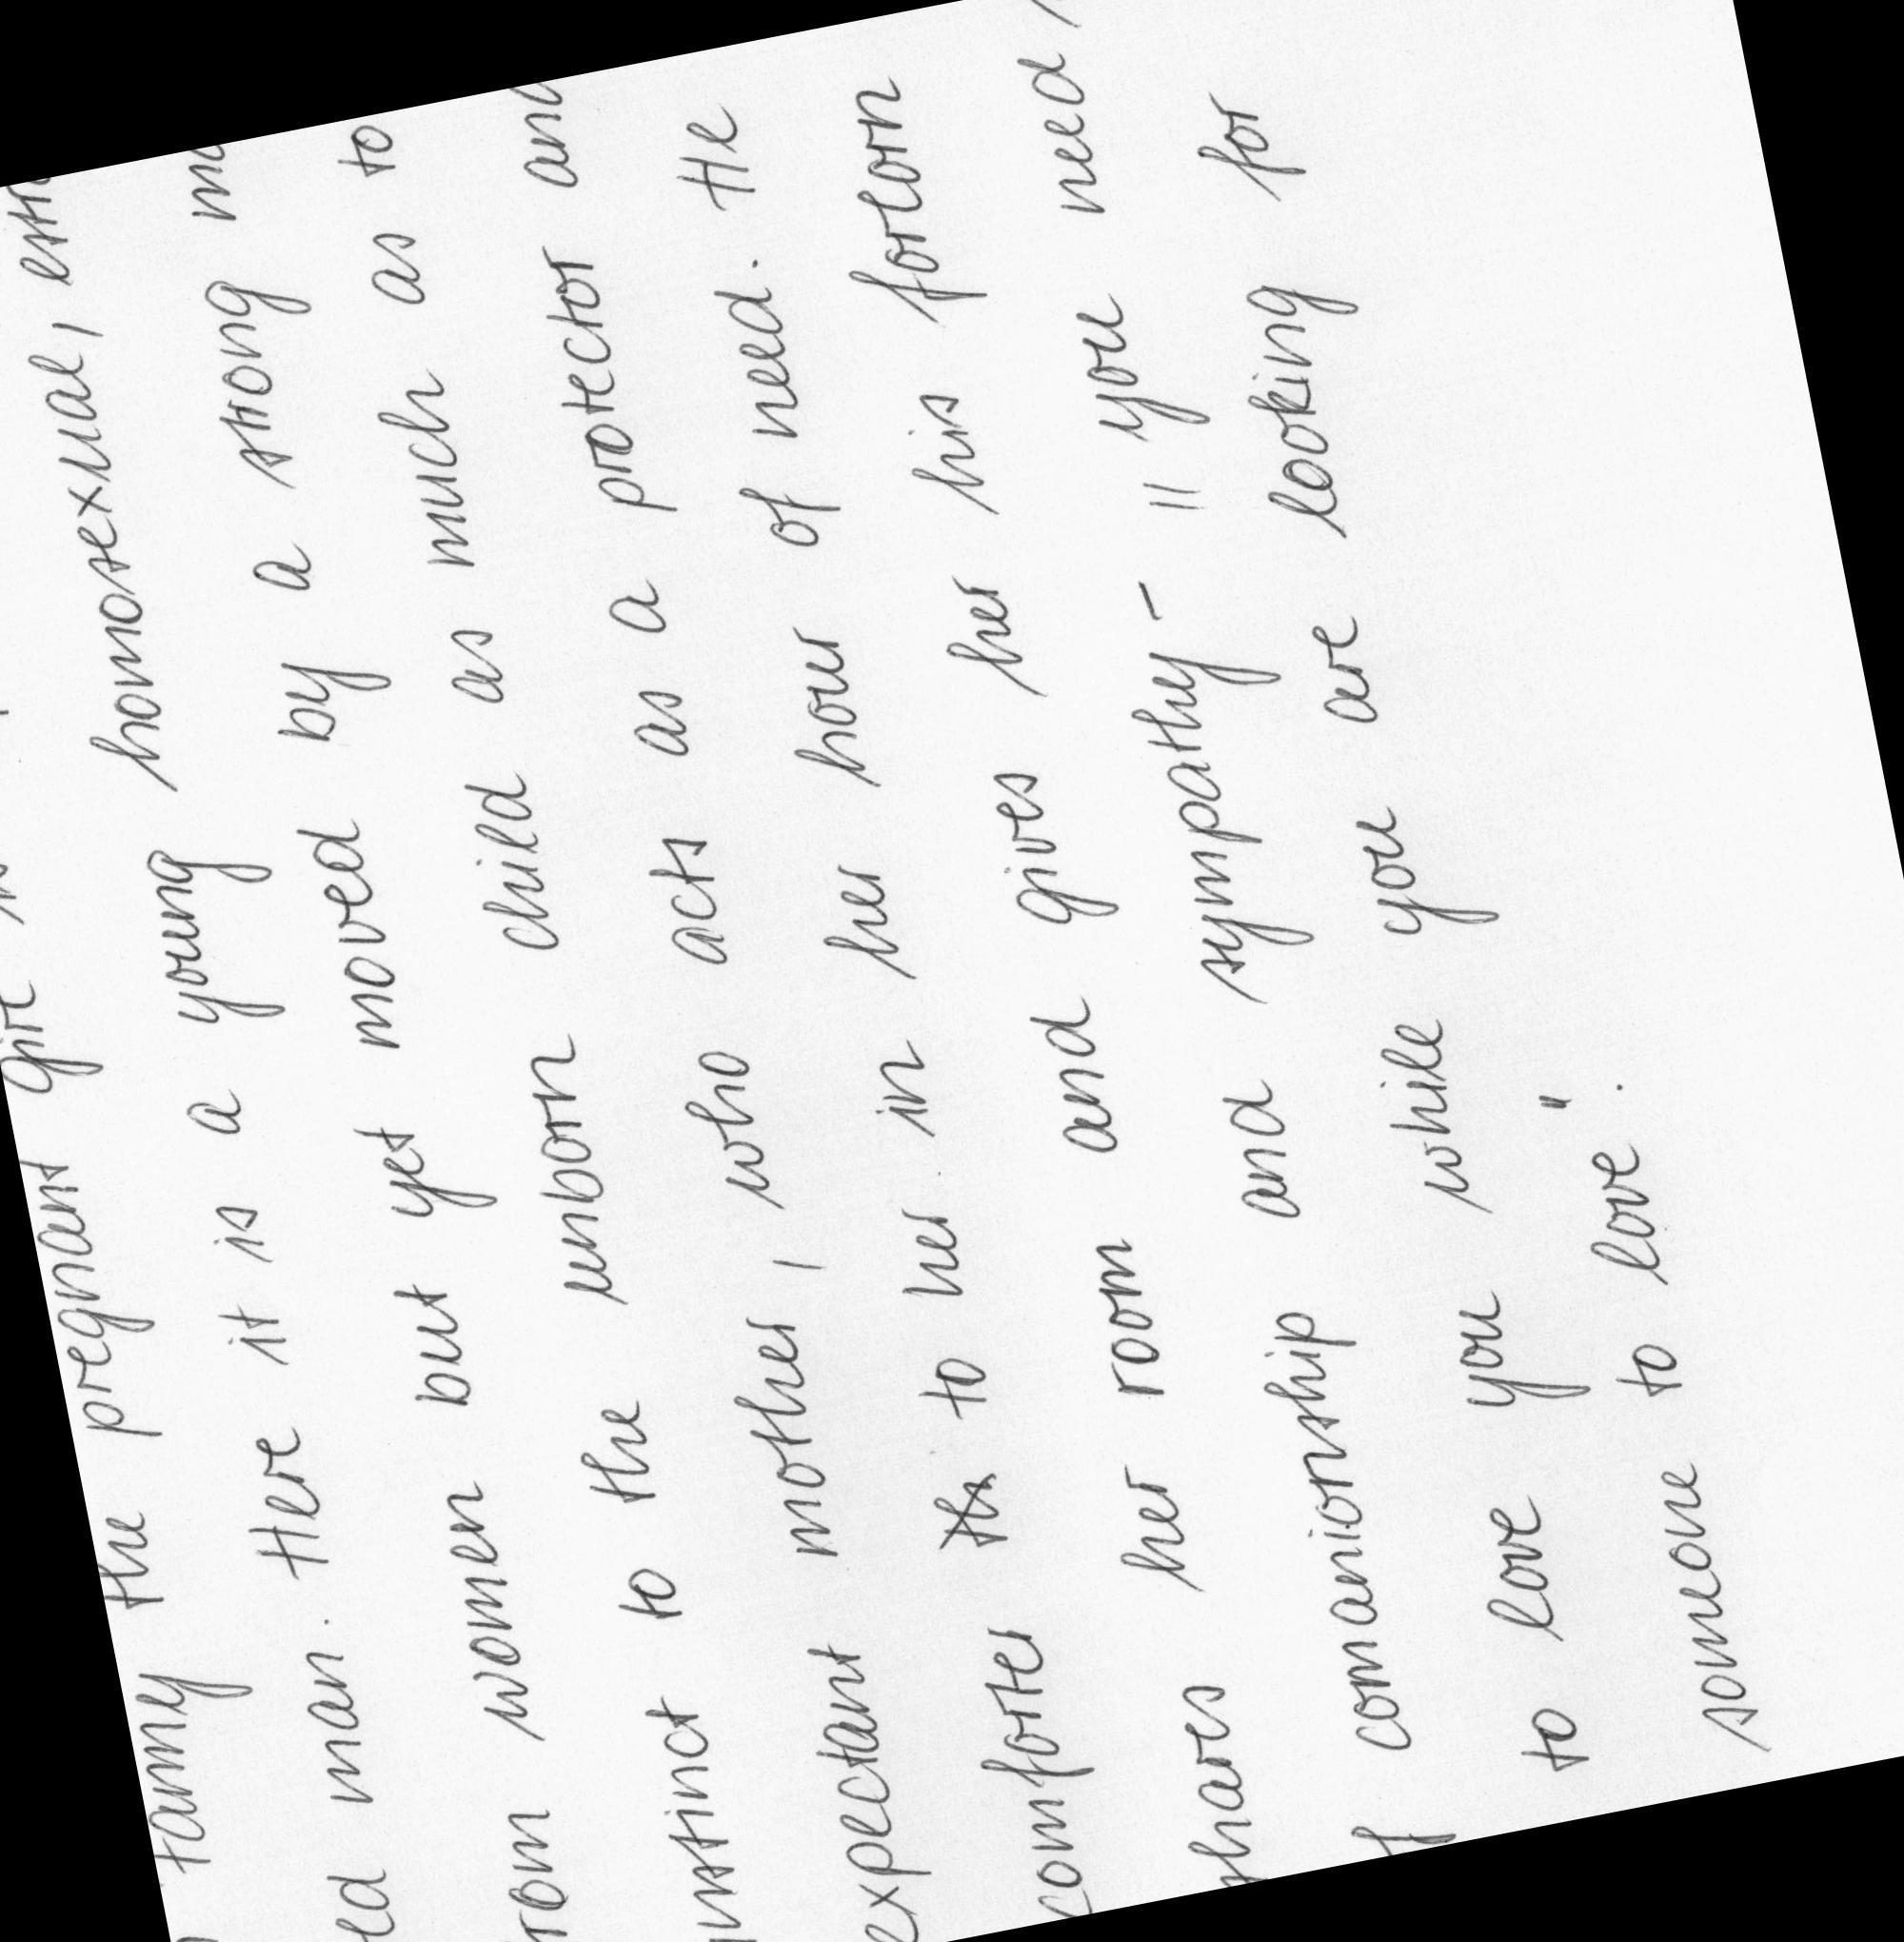 the pregnant girl
man. Here it is a young homosexual,
women but yet moved by a strong
instinct to the unborn child as much as to
expectant mother, who acts as a protector and
comforter to her in her hour of need. He
shares her room and gives her his forlorn
comanionship and sympathy - "you need
to love you while you are looking for
someone to love".